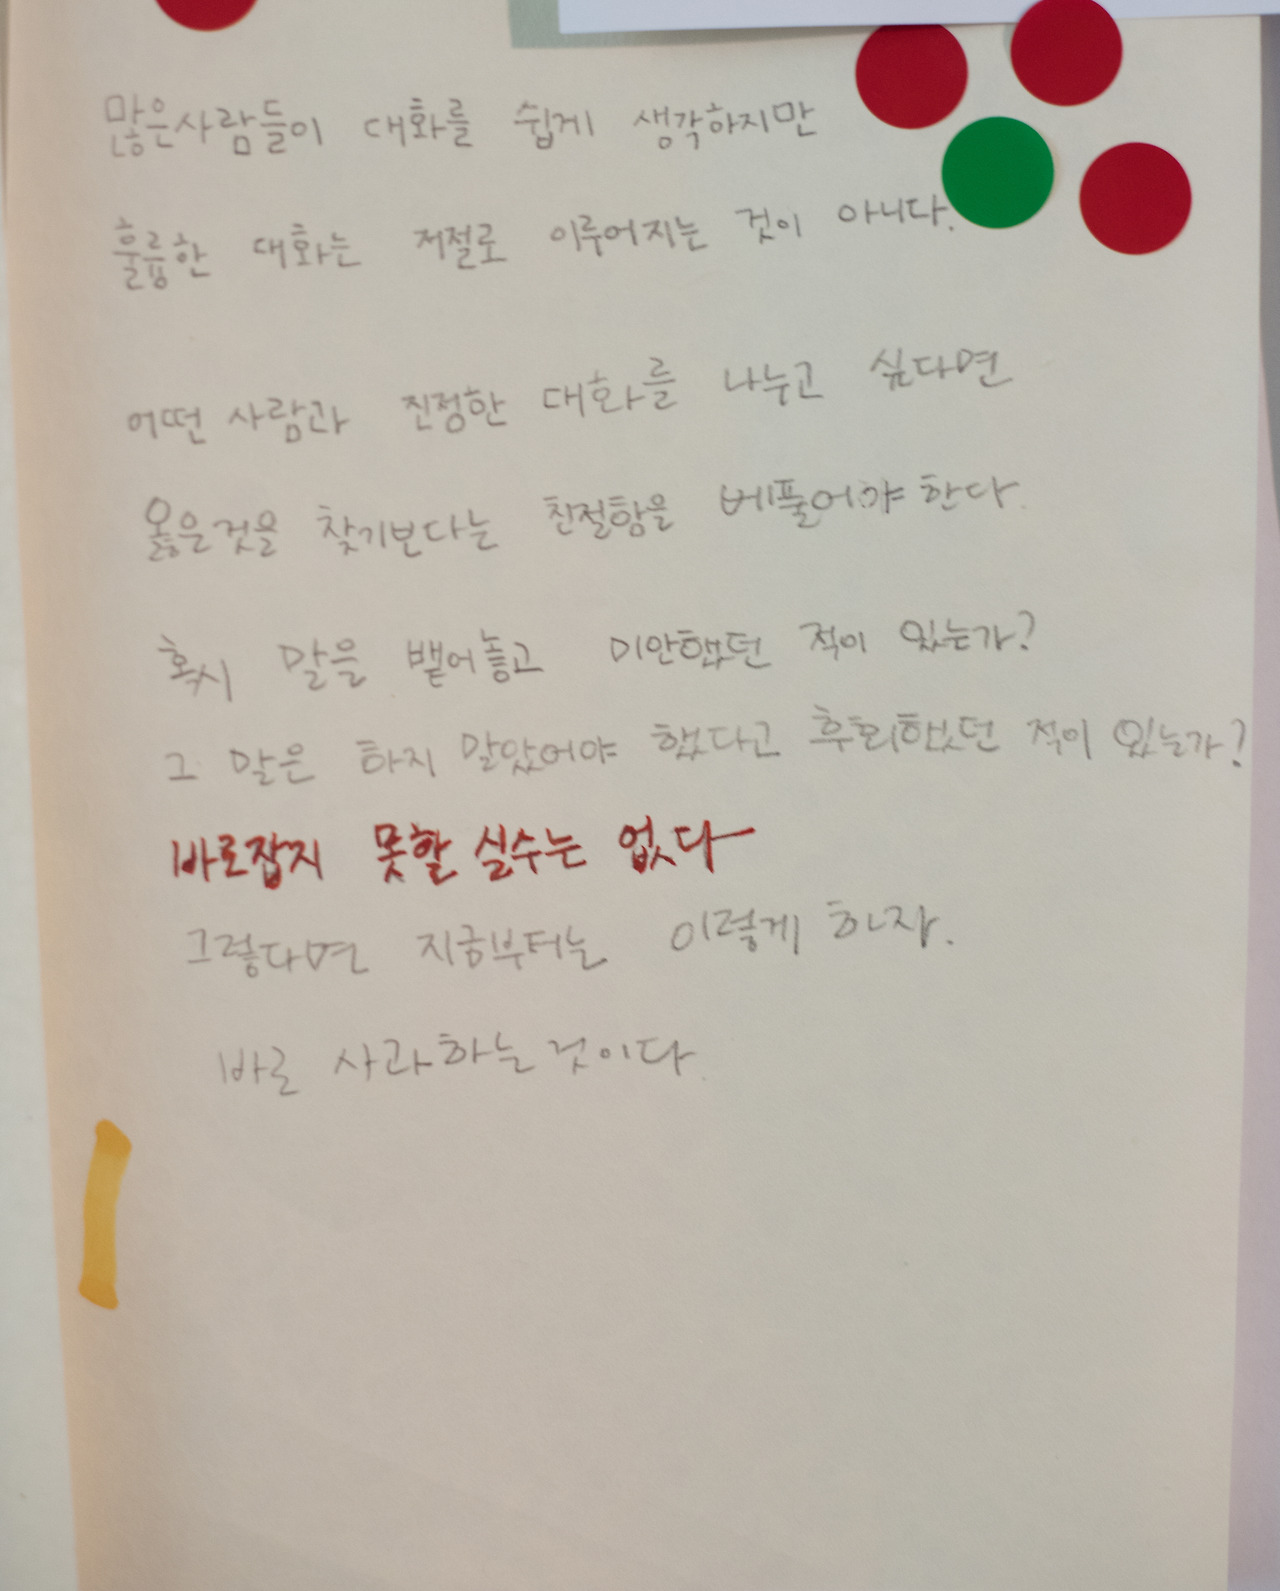 많은사람들이 대화를 쉽게 생각하지만
훌륭한 대화는 저절로 이루어지는 것이 아니다.
어떤 사람과 진정한 대화를 나누고 싶다면
옳은것을 찾기보다는 친절함을 베풀어야 한다.
혹시 말을 뱉어놓고 미안했던 적이 있는가?
그 말은 하지 말았어야 했다고 후회했던 적이 있는가?
바로잡지 못할 실수는 없다
그렇다면 지금부터는 이렇게 하자.
바로 사과하는 것이다.